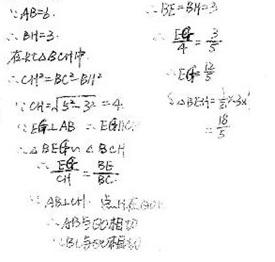 ∵AB=6.
∴BH=3.
在Rt△BCH中
∴CH²=BC²-BH²
∴CH=√5²-3²=4.
∵EG⊥AB ∴EG∥C
∴△BEG∽△BCH
∴EG/CH=BE/BC
∵AB⊥CH
∴AB与 相切
∴BE=BH=3.
∴EG/4=3/5
∴EG=12/5
S△BEH=1/2×3×
=18/5